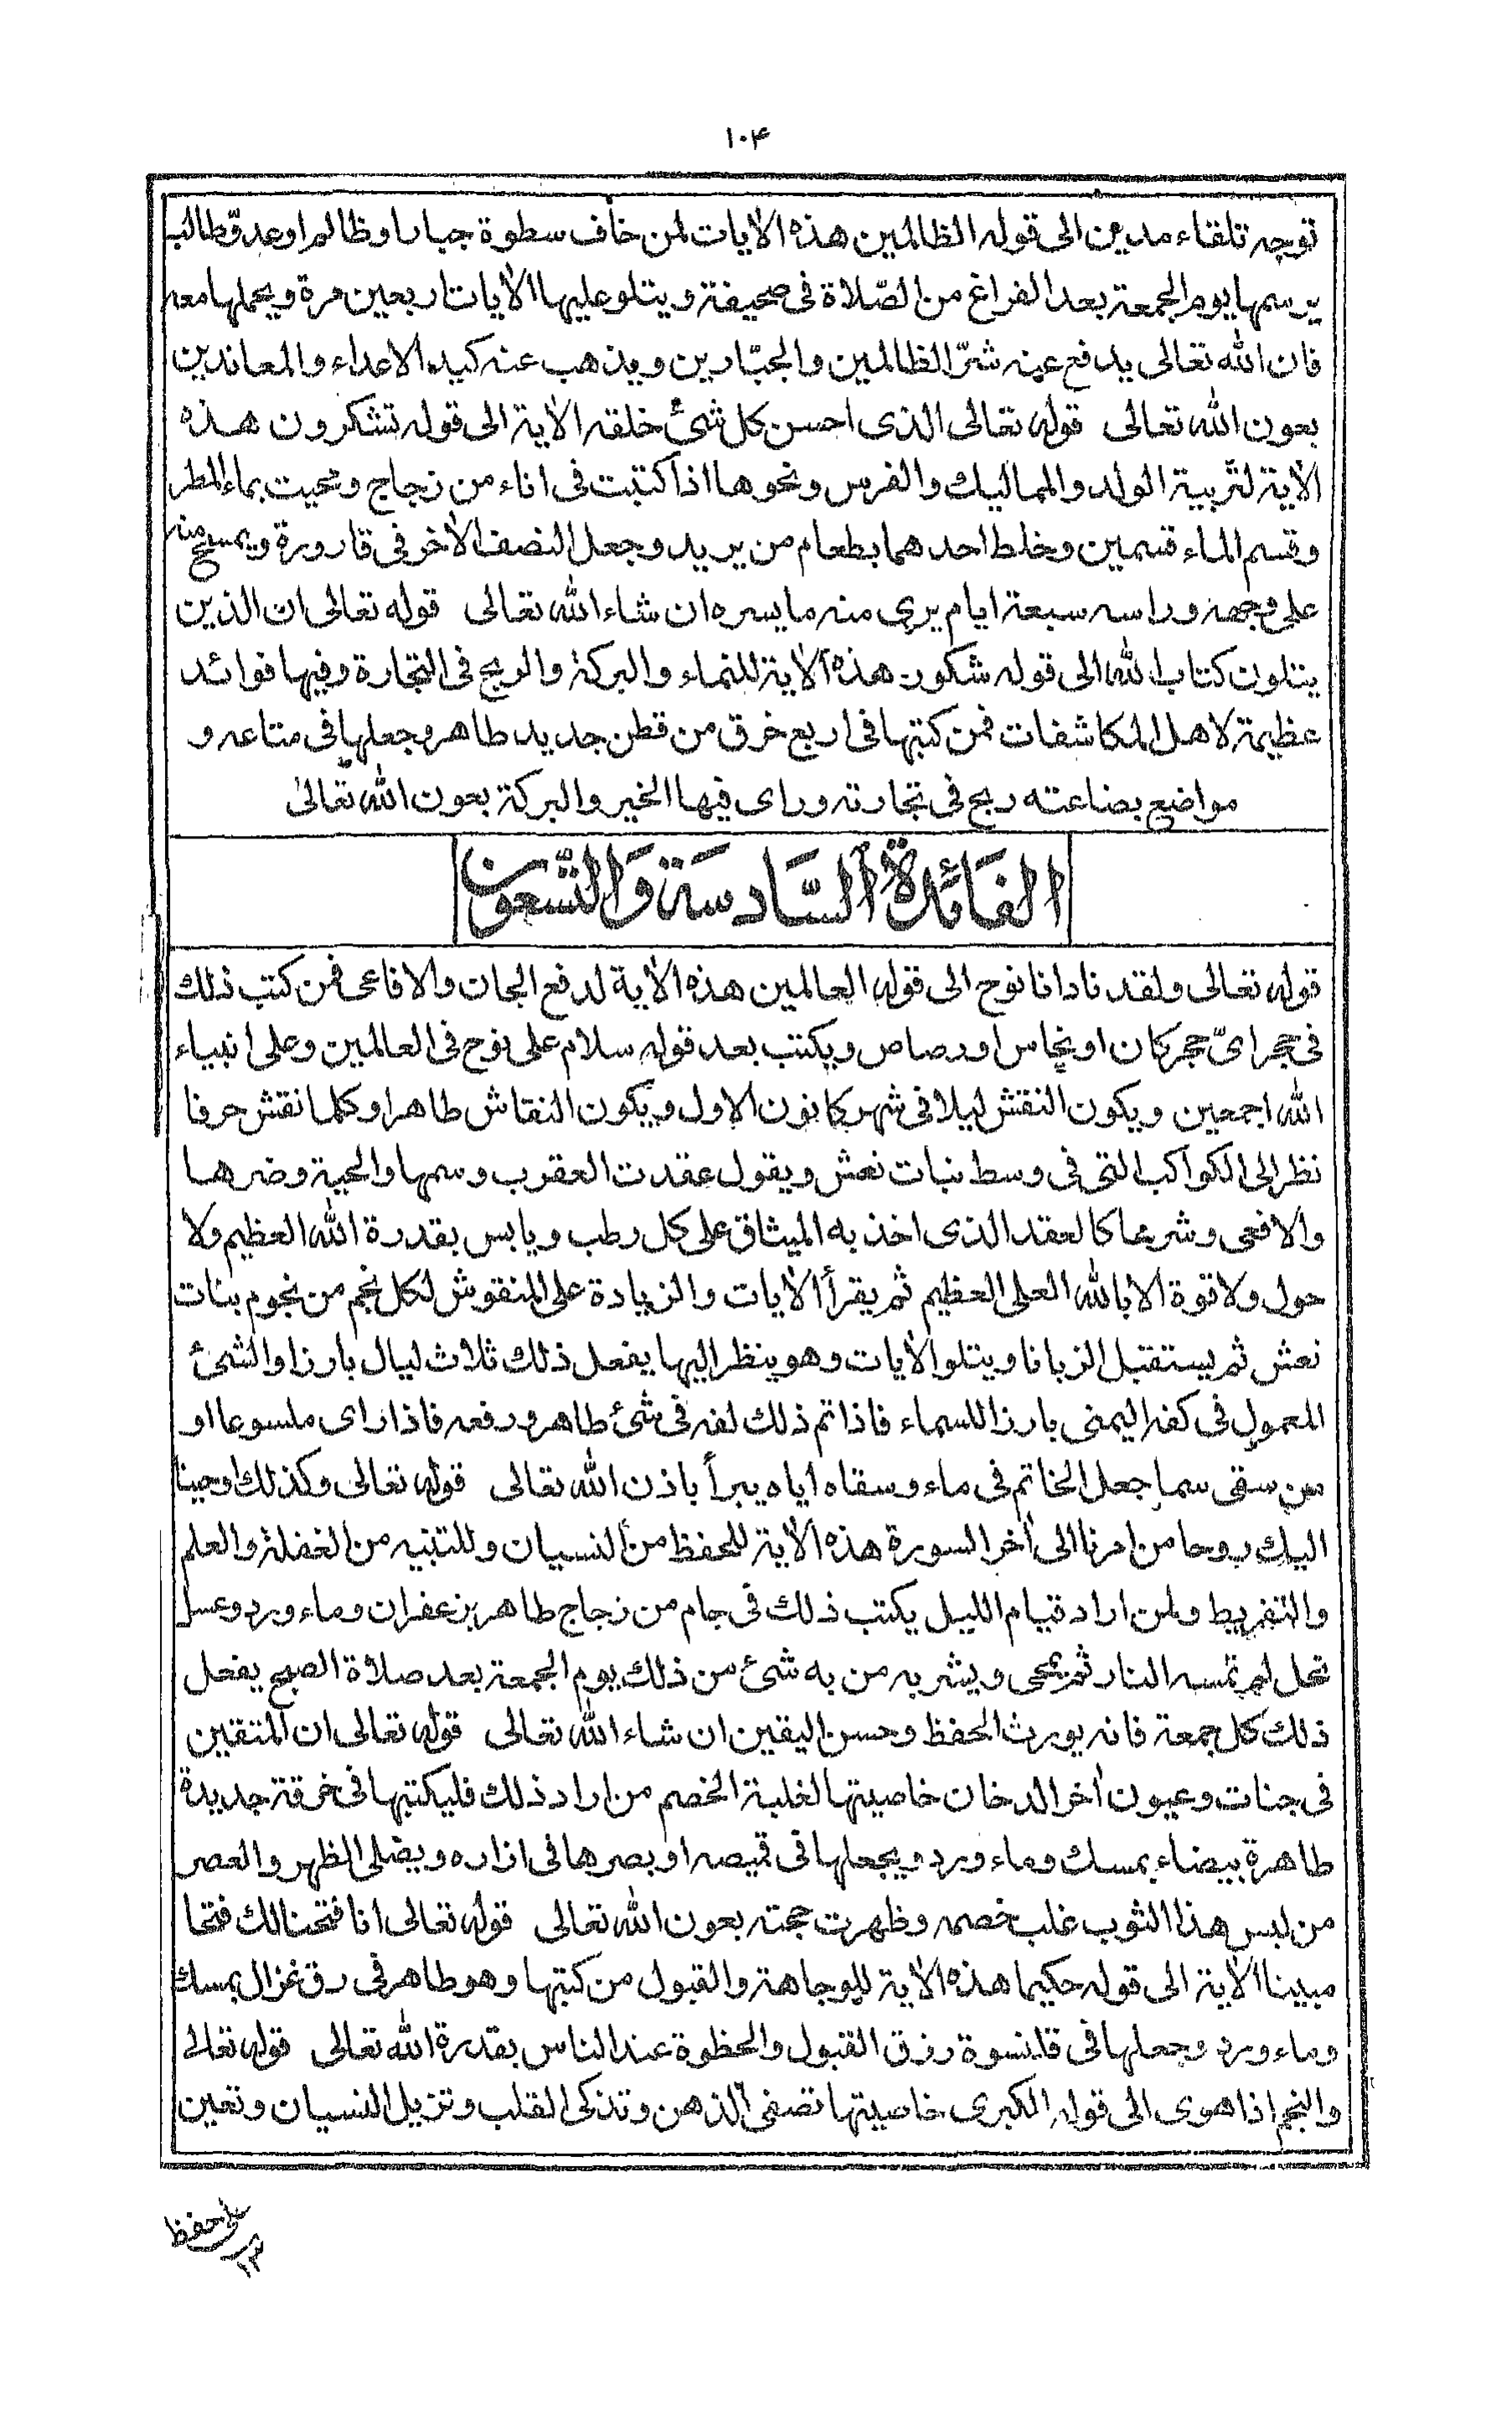 ١٠٤
توجه تلقاء مدين الى قوله الظالمين هذه الأيات لمن خاف سطوة جبارا وظالم اوعدو طالب
يرسمها يوم الجمعة بعد الفراغ من الصّلاة فى صحيفة ويتلو عليها الأيات اربعين مرة ويحملها معه
فان الله تعالى يدفع عنه شرّ الظالمين والجبّارين ويذهب عنه كيد الاعداء والمعاندين
بعون الله تعالى قوله تعالى الذى احسن كل شئ خلقه الأية الى قوله تشكرون هذه
الأية لتربية الولد والمماليك والفرس ونحوها اذا كتبت فى اناء من زجاج ومحيت بماء المطر
وقسم الماء قسمين وخلط احدهما بطعام من يريد وجعل النصف الأخر فى قارورة ويمسح منه
على وجهه وراسه سبعة ايام يرى منه ما يسره ان شاء الله تعالى قوله تعالى ان الذين
يتلون كتاب الله الى قوله شكور هذه الأية للنماء والبركة والربح فى التجارة وفيها فوائد
عظيمة لاهل المكاشفات فمن كتبها فى اربع خرق من قطن جديد طاهر وجعلها فى متاعه و
مواضع بضاعته ربح فى تجارته وراى فيها الخير والبركة بعون الله تعالىٰ
الفَائدة السَّادسَة وَالتّسعون
قوله تعالى ولقد نادانا نوح الى قوله العالمين هذه الأية لدفع الجان والافاعى فمن كتب ذلك
فى حجر اىّ حجر كان او نحاس او رصاص ويكتب بعد قوله سلام على نوح فى العالمين وعلى انبياء
الله اجمعين ويكون النقش ليلا فى شهر كانون الاول ويكون النقاش طاهرا وكلما نقش حرفا
نظر الى الكواكب التى فى وسط بنات نعش ويقول عقدت العقرب وسمها والحية وضرها
والافعى وشرها كالعقد الذى اخذ به الميثاق على كل رطب ويابس بقدرة الله العظيم ولا
حول ولا قوة الا بالله العلى العظيم ثم يقرأ الأيات والزيادة على المنقوش لكل نجم من نجوم بنات
نعش ثم يستقبل الزبانا ويتلو الأيات وهو ينظر اليها يفعل ذلك ثلاث ليال بارزا والشئ
المعمول فى كفه اليمنى بارزا للسماء فاذا تم ذلك لفه فى شئ طاهر ورفعه فاذا راى ملسوعا او
من سقى سما جعل الخاتم فى ماء وسقاه اياه يبرأ باذن الله تعالى قوله تعالى وكذلك اوحينا
اليك روحا من امرنا الى أخر السورة هذه الأية للحفظ من النسيان وللتنبيه من الغفلة والعلم
والتفريط ولمن اراد قيام الليل يكتب ذلك فى جام من زجاج طاهر بزعفران وماء ورد وعسل
نحل لم تمسه النار ثم يمحى ويشربه من به شئ من ذلك يوم الجمعة بعد صلاة الصبح يفعل
ذلك كل جمعة فانه يورث الحفظ وحسن اليقين ان شاء الله تعالى قوله تعالى ان المتقين
فى جنات وعيون أخر الدخان خاصيتها لغلبة الخصم من اراد ذلك فليكتبها فى خرقة جديدة
طاهرة بيضاء بمسك وماء ورد ويجعلها فى قميصه او بصرها فى ازاره ويصلى الظهر والعصر
من لبس هذا الثوب غلب خصمه وظهرت حجته بعون الله تعالى قوله تعالى انا فتحنا لك فتحا
مبينا الأية الى قوله حكيما هذه الأية للوجاهة والقبول من كتبها وهو طاهر فى رق غزال بمسك
وماء ورد وجعلها فى قلنسوة رزق القبول والحظوة عند الناس بقدرة الله تعالى قوله تعالى
والنجم اذا هوى الى قوله الكبرى خاصيتها تصفى الذهن وتذكى القلب وتزيل النسيان وتعين
على حفظ